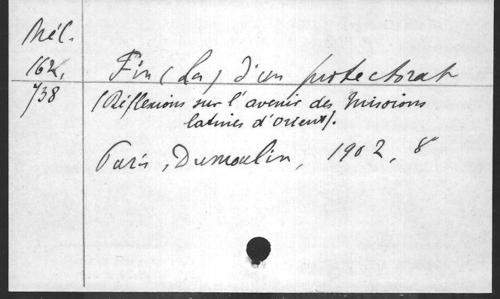 Mél.
162,
738
Fin (La) d'un protectorat
(Réflexions sur l'avenir des Missions
latines d'orient).
Paris, Dumoulin, 1902, 8°